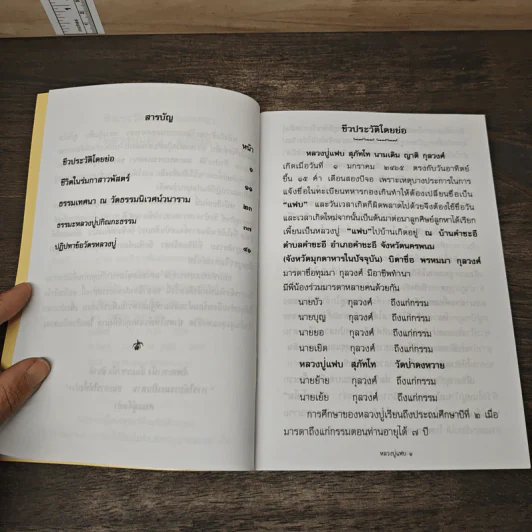 สารบัญ
หน้า
ชีวประวัติโดยย่อ ๑
ชีวิตในร่มกาสาวพัสตร์ ๑๑
ธรรมเทศนา ณ วัดธรรมนิเวศน์วนาราม ๒๓
ธรรมะหลวงปู่ปกิณกะธรรม ๓๗
ปฏิปทาข้อวัตรหลวงปู่ ๔๑
ชีวประวัติโดยย่อ
หลวงปู่แฟบ สุภัทโท นามเดิม ญาติ กุลวงศ์
เกิดเมื่อวันที่ ๑ มกราคม ๒๔๖๕ ตรงกับวันอาทิตย์
ขึ้น ๑๕ ค่ำ เดือนสองปีจอ เพราะเหตุบางประการในการ
แจ้งชื่อในทะเบียนทหารกองเกินทำให้ต้องเปลี่ยนชื่อเป็น
"แฟบ" และวันเวลาเกิดก็ผิดพลาดไปด้วยจึงต้องใช้ชื่อวัน
และเวลาเกิดใหม่จากนั้นเป็นต้นมาต่อมาลูกศิษย์ลูกหาได้เรียก
เพี้ยนเป็นหลวงปู่ "แฟบ" ไปบ้านเกิดอยู่ ณ บ้านคำชะอี
ตำบลคำชะอี อำเภอคำชะอี จังหวัดนครพนม
(จังหวัดมุกดาหารในปัจจุบัน) บิดาชื่อ พรหมมา กุลวงศ์
มารดาชื่อทุมมา กุลวงศ์ มีอาชีพทำนา
มีพี่น้องร่วมมารดาหลายคนด้วยกัน
นายบัว กุลวงศ์ ถึงแก่กรรม
นายบุญ กุลวงศ์ ถึงแก่กรรม
นายยอ กุลวงศ์ ถึงแก่กรรม
นายเยิด กุลวงศ์ ถึงแก่กรรม
หลวงปู่แฟบ สุภัทโท วัดป่าดงหวาย
นายย้าย กุลวงศ์ ถึงแก่กรรม
นายเย้ย กุลวงศ์ ถึงแก่กรรม
การศึกษาของหลวงปู่เรียนถึงประถมศึกษาปีที่ ๒ เมื่อ
มารดาถึงแก่กรรมตอนท่านอายุได้ ๗ ปี
หลวงปู่แฟบ ๑